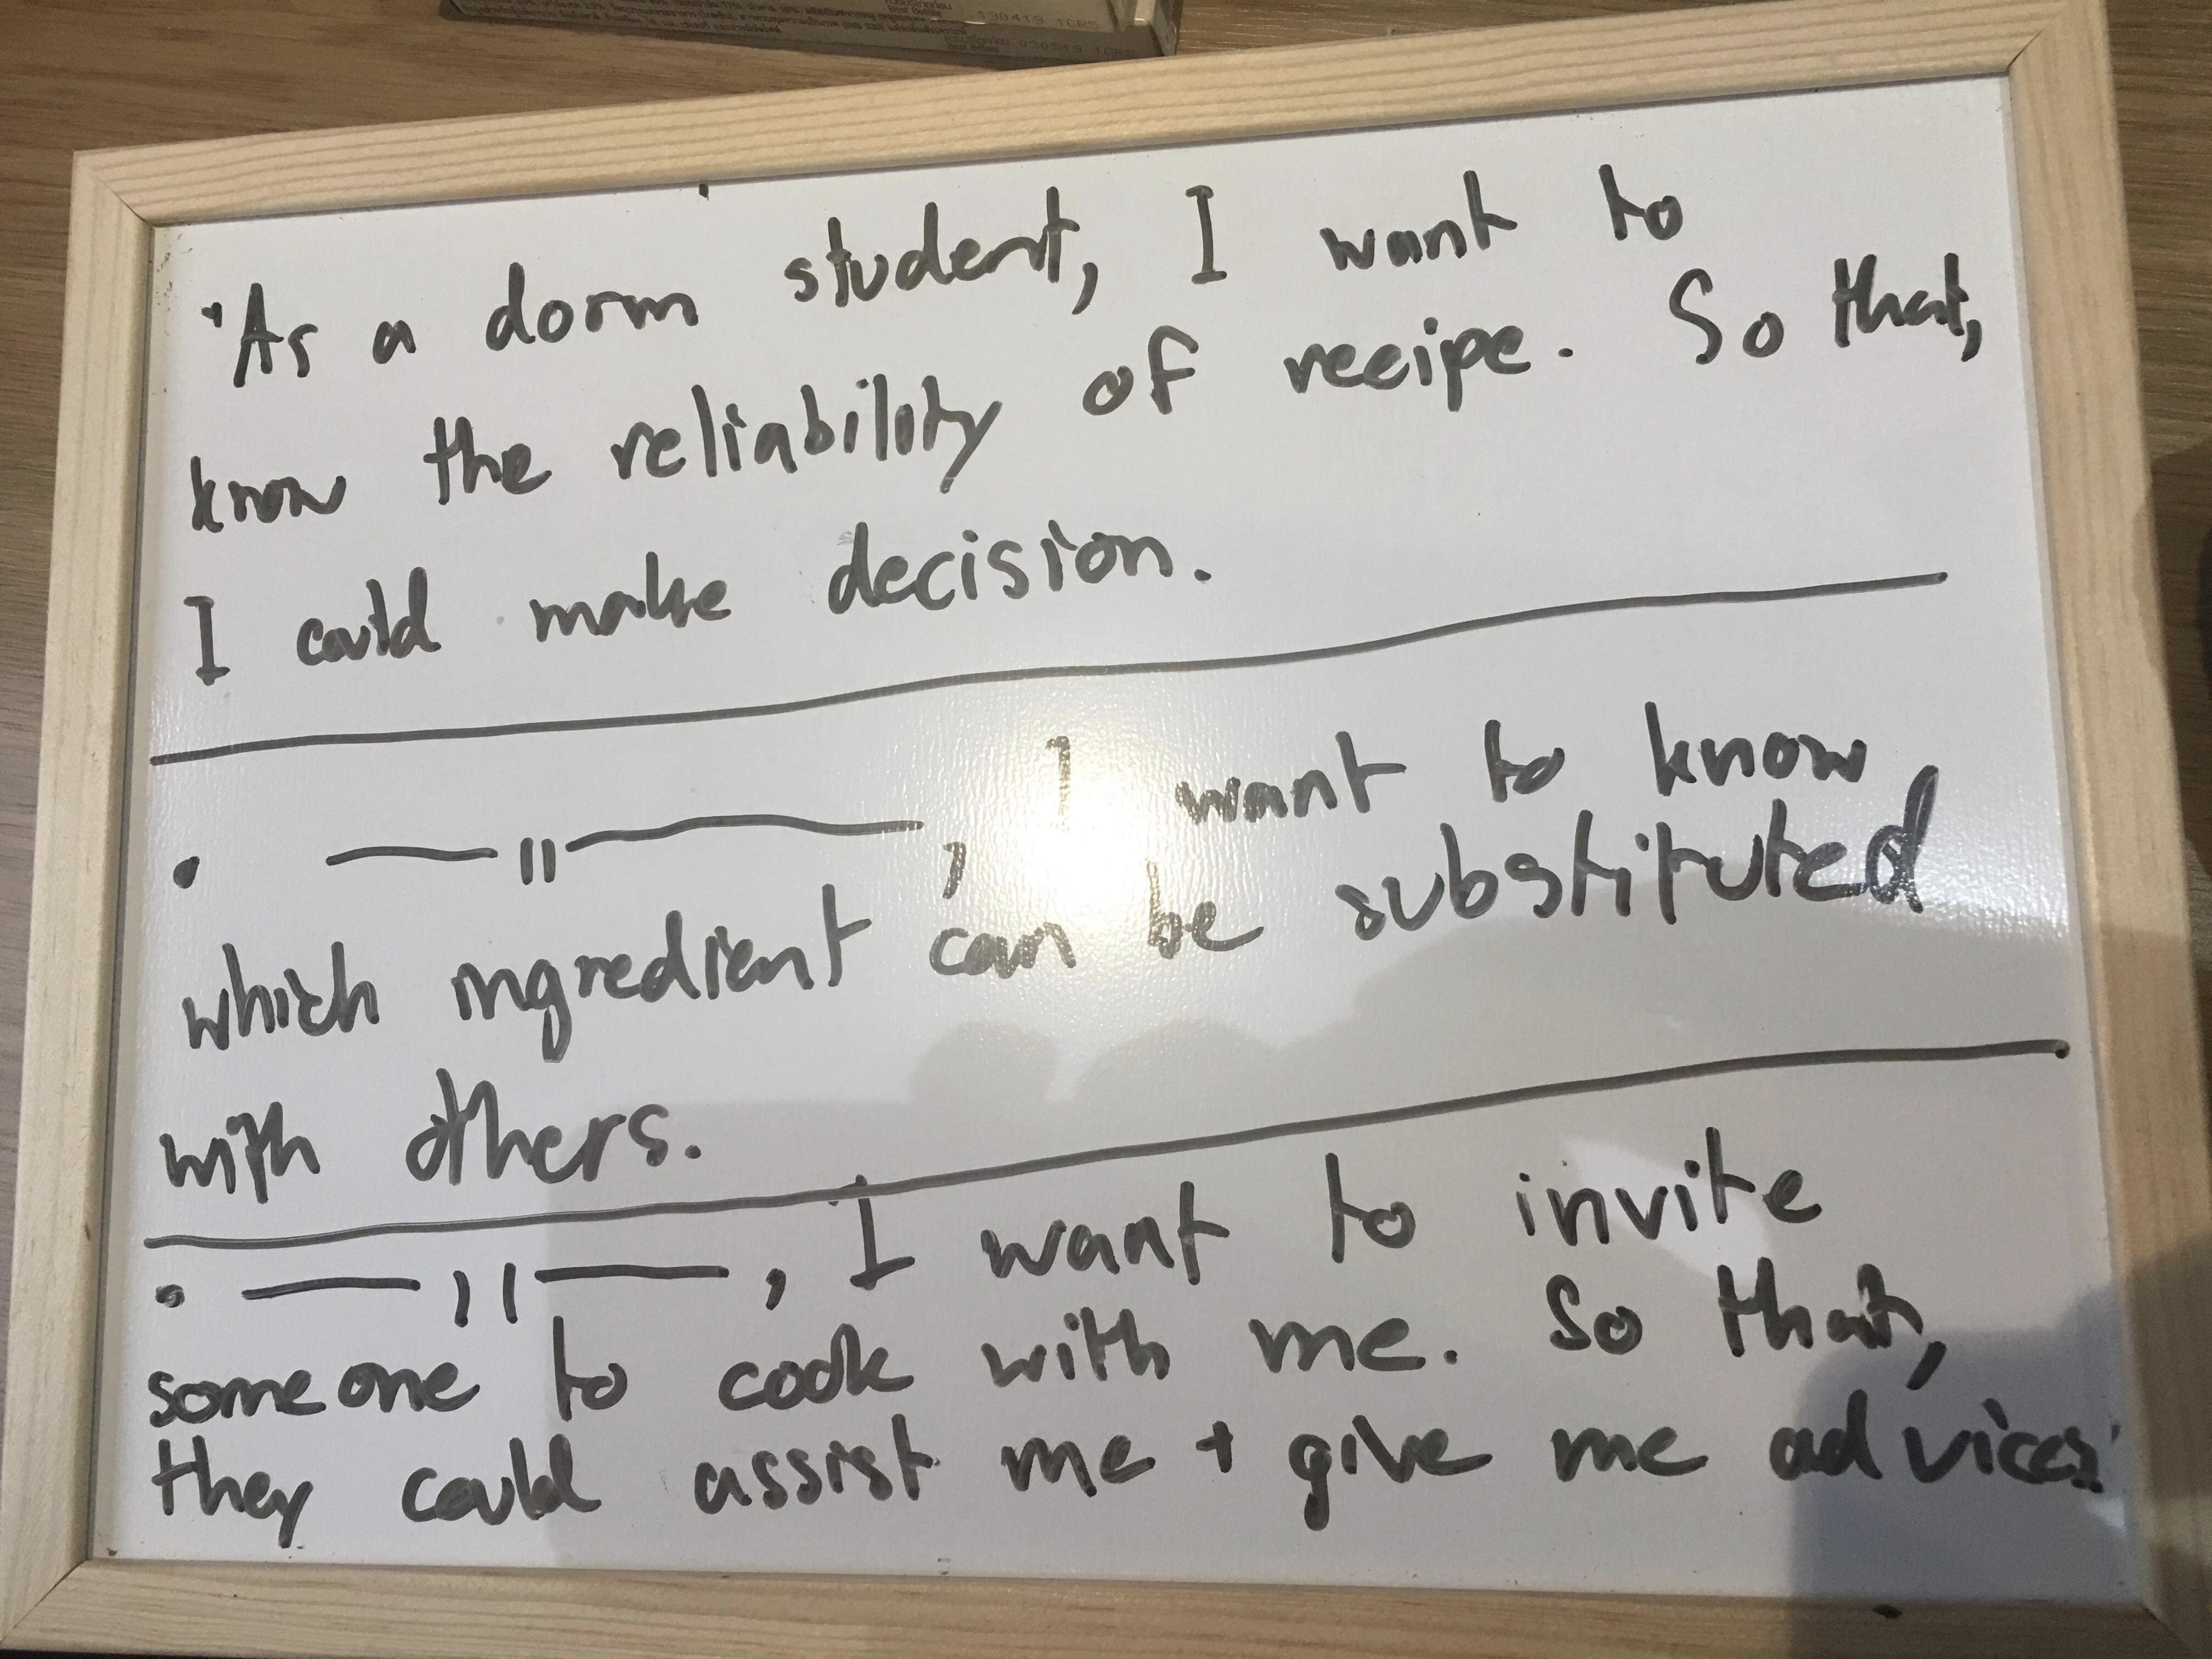 190419 1GR5
030519 1GR5
• As a dorm student, I want to
know the reliability of recipe. So that,
I could make decision.
• —— 11 ——, I want to know
which ingredient can be substituted
with others.
• —— 11 ——, I want to invite
someone to cook with me. So that,
they could assist me + give me advices.